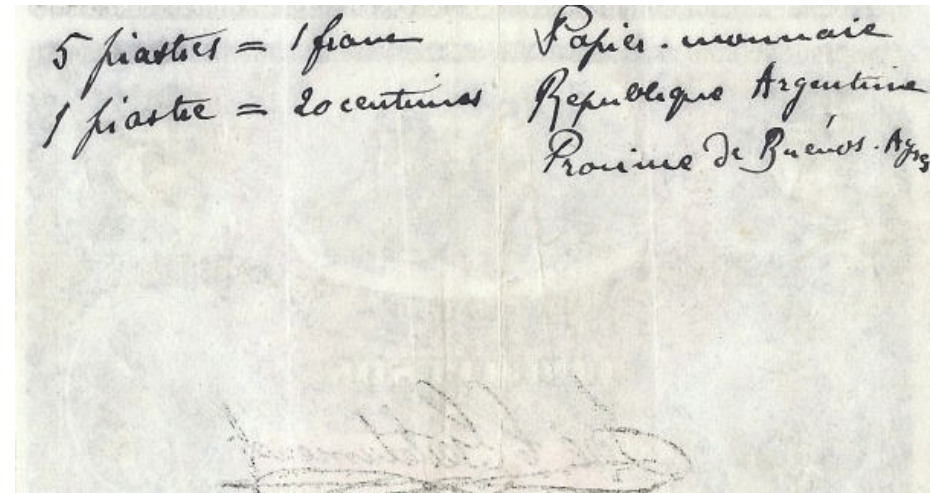 5 piastres = 1 franc
1 piastre = 20 centimes
Papier-monnaie
Republique Argentine
Province de Buénos-Ayres